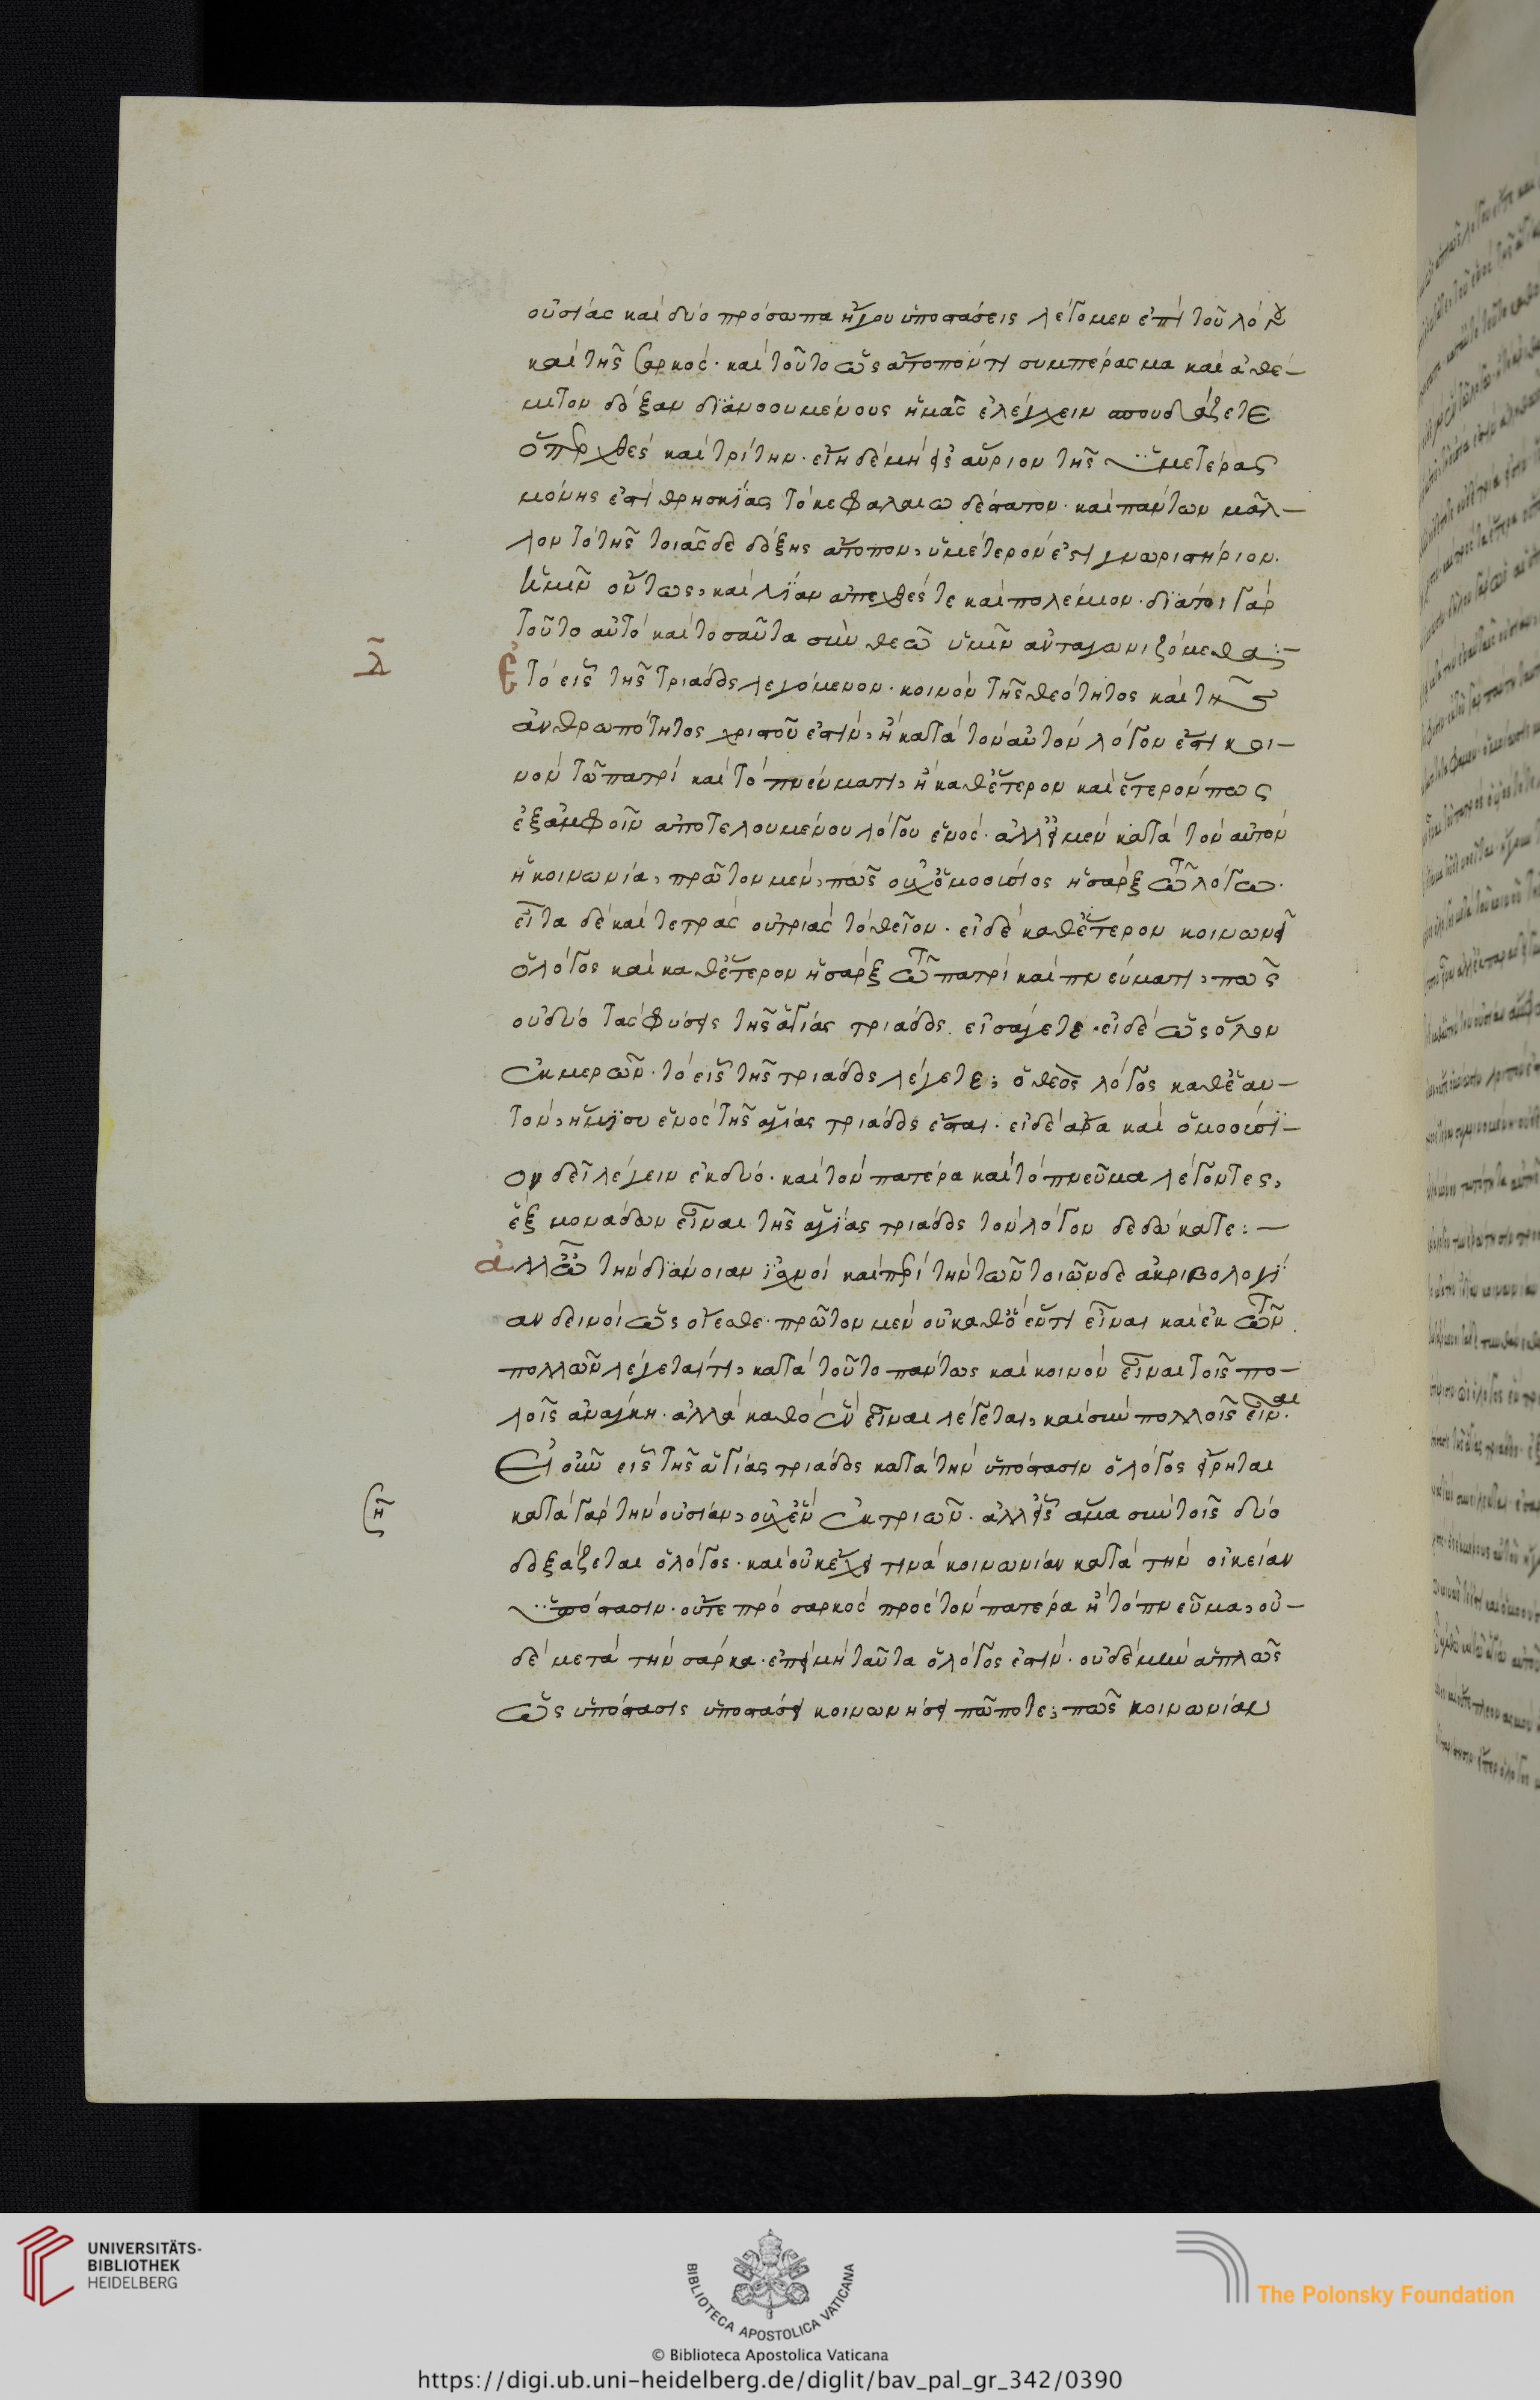 οὐσίας καὶ δύο πρόσωπα ἤγουν ὑποστάσεις λέγομεν ἐπὶ τοῦ λόγου
καὶ τῆς σαρκός· καὶ τοῦτο ὡς συμπέρασμα καὶ ἀθέ–
μιτον δόξαν ἡμᾶς ἐλέγχειν σπουδάζετε
ὅπερ χθὲς καὶ τρίτην· εἴη δὲ μὴ εἰς αὔριον τῆς ὑμετέρας
μόνης ἐστὶ θρησκίας τὸ κεφαλαιωδέστατον· καὶ πάντων μᾶλ–
λον τὸ τῆς τοιᾶσδε δόξης ἄτοπον, ὑμέτερόν ἐστι γνωριστήριον.
ἡμῖν οὕτως, καὶ λίαν ἀπεχθές τε καὶ πολέμιον· διάτοι γὰρ
τοῦτο αὐτὸ καὶ τοσαῦτα σὺν θεῶ ὑμῖν ἀνταγωνιζόμεθα:–
λ
Ἔτὸ εἷς τῆς τριάδος λεγόμενον· κοινὸν τῆς θεότητος καὶ τῆς
ἀνθρωπότητος χριστοῦ ἐστὶν, ἢ κατὰ τὸν αὐτὸν λόγον ἐστὶ κοι–
νὸν τῶ πατρὶ καὶ τὸ πνεύματι, ἢ καθ' ἕτερον καὶ ἕτερόν πως
ἐξ ἀμφοῖν ἀποτελουμένου λόγου ἑνός· ἀλλ' εἰ μὲν κατὰ τὸν αὐτὸν
ἡ κοινωνία, πρῶτον μὲν, πῶς οὐχ ὁμοούσιος ἡ σὰρξ τῶ λόγω·
εἶτα δὲ καὶ τετρὰς οὐ τριὰς τὸ θεῖον· εἰ δὲ καθ' ἕτερον κοινωνεῖ
ὁ λόγος καὶ καθ' ἕτερον ἡ σὰρξ τῶ πατρὶ καὶ πνεύματι, πῶς
οὐ δύο τὰς φύσεις τῆς ἁγίας τριάδος εἰσάγετε· εἰ δὲ ὡς ὅλον
ἐκ μερῶν· τὸ εἷς τῆς τριάδος λέγετε; ὁ θεὸς λόγος καθ' ἑαυ–
τὸν, ἥμισυ ἑνὸς τῆς ἁγίας τριάδος ἔσται· εἰ δὲ ἄρα καὶ ὁμοούσι–
ον δεῖ λέγειν ἐκ δύο· καὶ τὸν πατέρα καὶ τὸ πνεῦμα λέγοντες,
ἐξ μονάδων εἶναι τῆς ἁγίας τριάδος τὸν λόγον δεδώκατε:–
ἀλλ' ὦ τὴν διάνοιαν ἰσχνοὶ καὶ περὶ τὴν τῶν τοιῶνδε ἀκριβολογί
αν δεινοὶ ὡς οἴεσθε· πρῶτον μὲν οὐ καθ' ὃ ἕν τι εἶναι καὶ ἐκ τῶν
πολλῶν λέγεταί τι, κατὰ τοῦτο πάντως καὶ κοινὸν εἶναι τοῖς πο–
λοῖς ἀνάγκη· ἀλλὰ καθὸ ἓν εἶναι λέγεται, καὶ σὺν πολλοῖς εἶναι.
Εἰ οὖν εἷς τῆς ἁγίας τριάδος κατὰ τὴν ὑπόστασιν ὁ λόγος εἴρηται
κατὰ γὰρ τὴν οὐσίαν, οὐχ ἓν ἐκ τριῶν· ἀλλ' εἷς ἅμα σὺν τοῖς δύο
δοξάζεται ὁ λόγος· καὶ οὐκ ἔχει τινὰ κοινωνίαν κατὰ τὴν οἰκείαν
ὑπόστασιν· οὔτε πρὸ σαρκὸς πρὸς τὸν πατέρα ἢ τὸ πνεῦμα, οὐ–
δὲ μετὰ τὴν σάρκα· ἐπεὶ μὴ ταῦτα ὁ λόγος ἐστὶν· οὐδὲ μὴν ἁπλῶς
ὡς ὑπόστασις ὑποστάσει κοινωνήσει πώποτε; πῶς κοινωνίαν
UNIVERSITÄTS-
BIBLIOTHEK
HEIDELBERG
BIBLIOTECA APOSTOLICA VATICANA
The Polonsky Foundation
© Biblioteca Apostolica Vaticana
https://digi.ub.uni-heidelberg.de/diglit/bav_pal_gr_342/0390